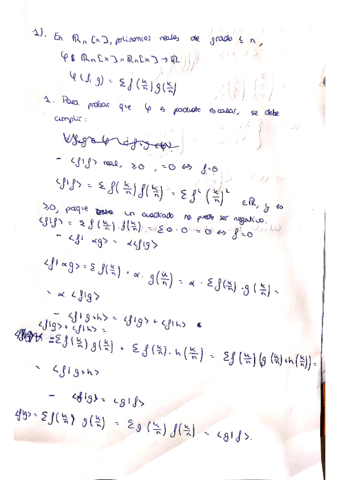 1). En ℝn[x], polinomios reales de grado ≤ n,
φ: ℝn[x]×ℝn[x] → ℝ
φ(f, g) = Σ f(k/n) g(k/n)
1. Para probar que φ es producto escalar, se debe
cumplir:
- <f|f> real, ≥0, =0 ⇔ f=0
<f|f> = Σ f(k/n) f(k/n) = Σ f²(k/n)² ∈ℝ, y es
≥0, porque un cuadrado no puede ser negativo.
<f|f> = Σ f(k/n) · f(k/n) = Σ 0·0 = 0 ⇔ f=0
- <f| αg> = α<f|g>
<f|αg> = Σ f(k/n) · α · g(k/n) = α · Σ f(k/n) · g(k/n) =
= α <f|g>
- <f|g+h> = <f|g> + <f|h>
<f|g> + <f|h> =
= Σ f(k/n) g(k/n) + Σ f(k/n) · h(k/n) = Σ f(k/n) (g(k/n) + h(k/n)) =
= <f|g+h>
- <f|g> = <g|f>
<f|g> = Σ f(k/n) g(k/n) = Σ g(k/n) f(k/n) = <g|f>.